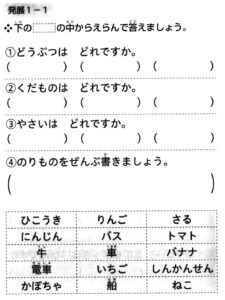 発展1－1
❖下の　　の中からえらんで答えましょう。
①どうぶつは　どれですか。
(　　　)(　　　)(　　　)
②くだものは　どれですか。
(　　　)(　　　)(　　　)
③やさいは　どれですか。
(　　　)(　　　)(　　　)
④のりものをぜんぶ書きましょう。
(　　　)
ひこうき　りんご　さる
にんじん　バス　トマト
牛　車　バナナ
電車　いちご　しんかんせん
かぼちゃ　船　ねこ